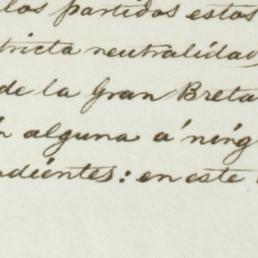 los partidos estos
tricta neutralidad
de la Gran Breta
n alguna á ning
ndientes: en este